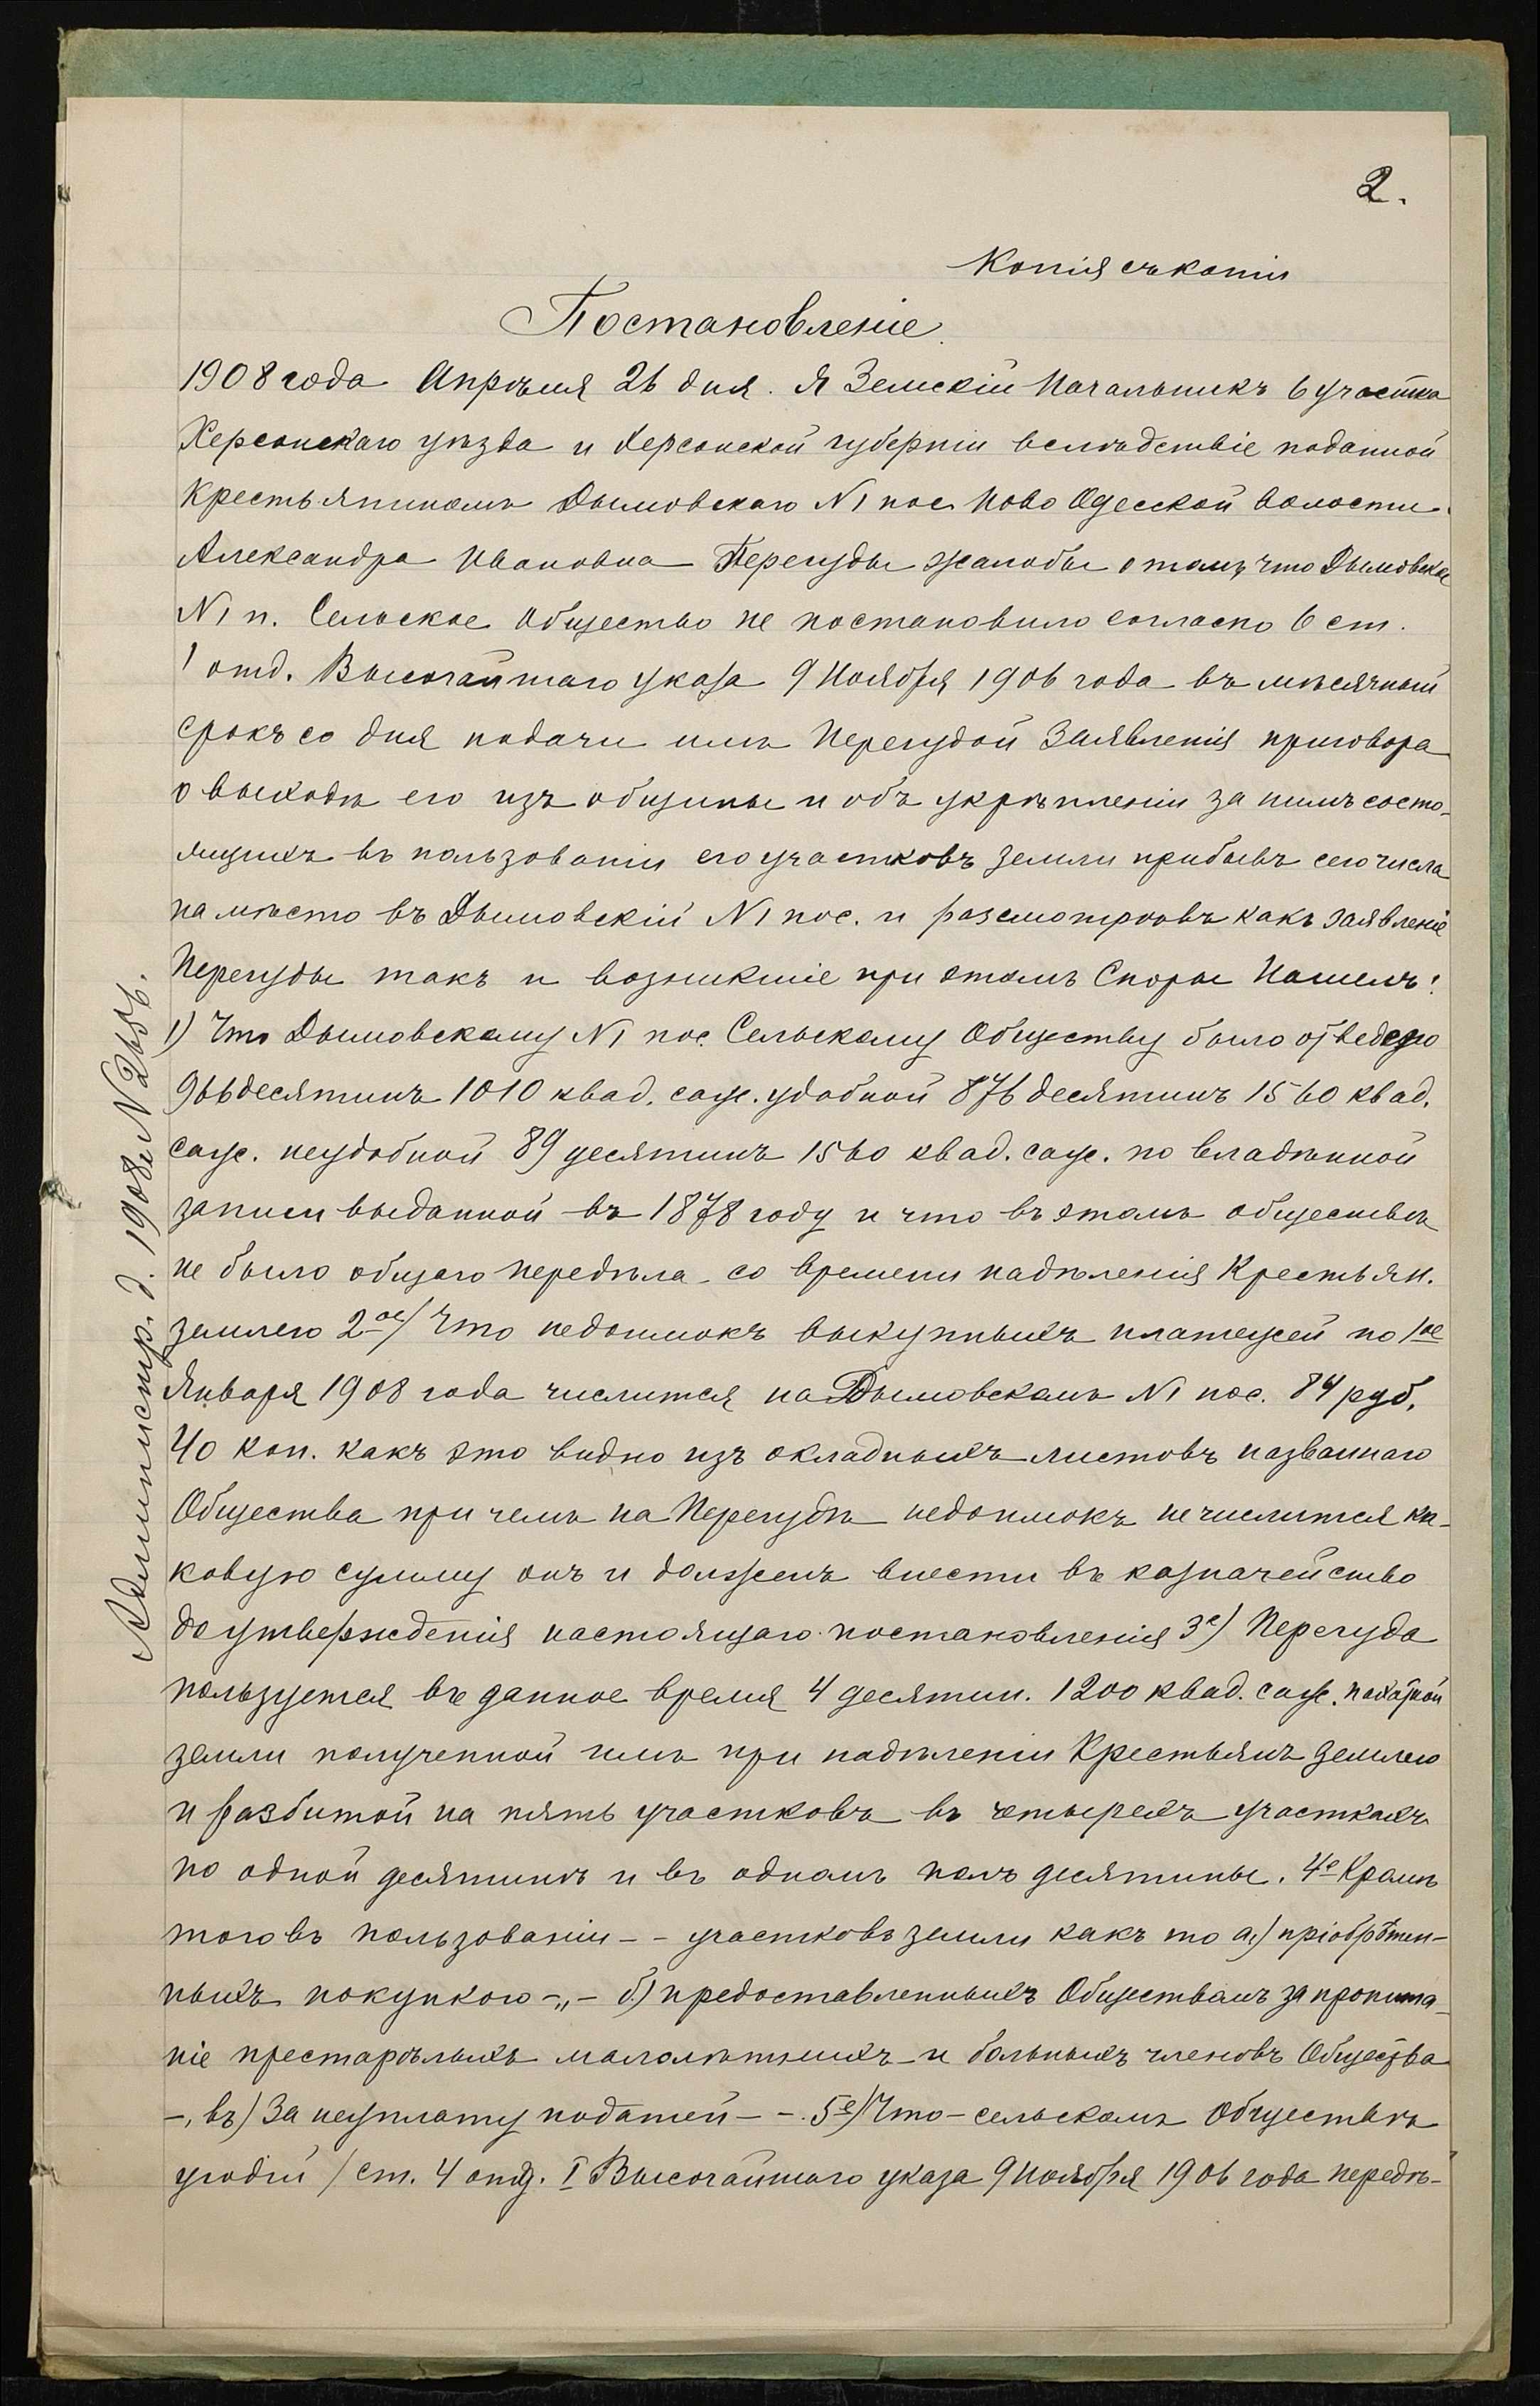 2.
Копія съ копіи
Постановленіе.
1908 года Апрѣля 26 дня. Я Земскій Начальникъ 6 участка
Херсонскаго уѣзда и Херсонской губерніи вслѣдствіе поданной
Крестьяниномъ Дымовскаго N 1 пос. Ново Одесской волости
Александра Ивановна Перегуды жалобы о томъ что Дымовское
N 1 п. Сельское Общество не постановило согласно 6 ст.
1 отд. Высочайшаго указа 9 Ноября 1906 года въ мѣсячный
срокъ со дня подачи имъ Перегудой Заявленія приговора
о выходѣ его изъ общины и объ укрѣпленіи за нимъ состо-
ящихъ въ пользованіи его участковъ земли прибывъ сего числа
на мѣсто въ Дымовскій N 1 пос. и разсмотрѣвъ какъ заявленіе
Перегуды такъ и возникшіе при этомъ Споры Нашелъ:
1) Что Дымовскому N 1 пос. Сельскому Обществу было отведено
966 десятинъ 1010 квад. саж. удобной 876 десятинъ 1560 квад.
саж. неудобной 89 десятинъ 1560 квад. саж. по владѣнной
записи выданной въ 1878 году и что въ этомъ обществѣ
не было общаго передѣла со времени надѣленія Крестьян.
землею 2ое) Что недоимокъ выкупныхъ платежей по 1ое
Января 1908 года числится на Дымовскомъ N 1 пос. 84 руб.
40 коп. какъ это видно изъ окладныхъ листовъ названнаго
Общества при чемъ на Перегудѣ недоимокъ не числится ка-
ковую сумму онъ и долженъ внести въ казначейство
до утвержденія настоящаго постановленія 3е) Перегуда
пользуется въ данное время 4 десятин. 1200 квад. саж. пахатной
земли полученной имъ при надѣленіи Крестьянъ землею
и разбитой на пять участковъ въ четырехъ участкахъ
по одной десятинѣ и въ одномъ полъ десятины. 4е Кромѣ
того въ пользованіи - - участковъ земли какъ то а) пріобрѣтен-
ныхъ покупкою -„- б) предоставленныхъ Обществомъ за пропита-
ніе престарѣлыхъ малолѣтнихъ и больныхъ членовъ Общества
-, въ) За неуплату податей - -. 5е) Что - сельскомъ Обществѣ
угодій / ст. 4 отд. I Высочайшаго указа 9 Ноября 1906 года передѣ-
Администр. д. 1908 г. N 2656.